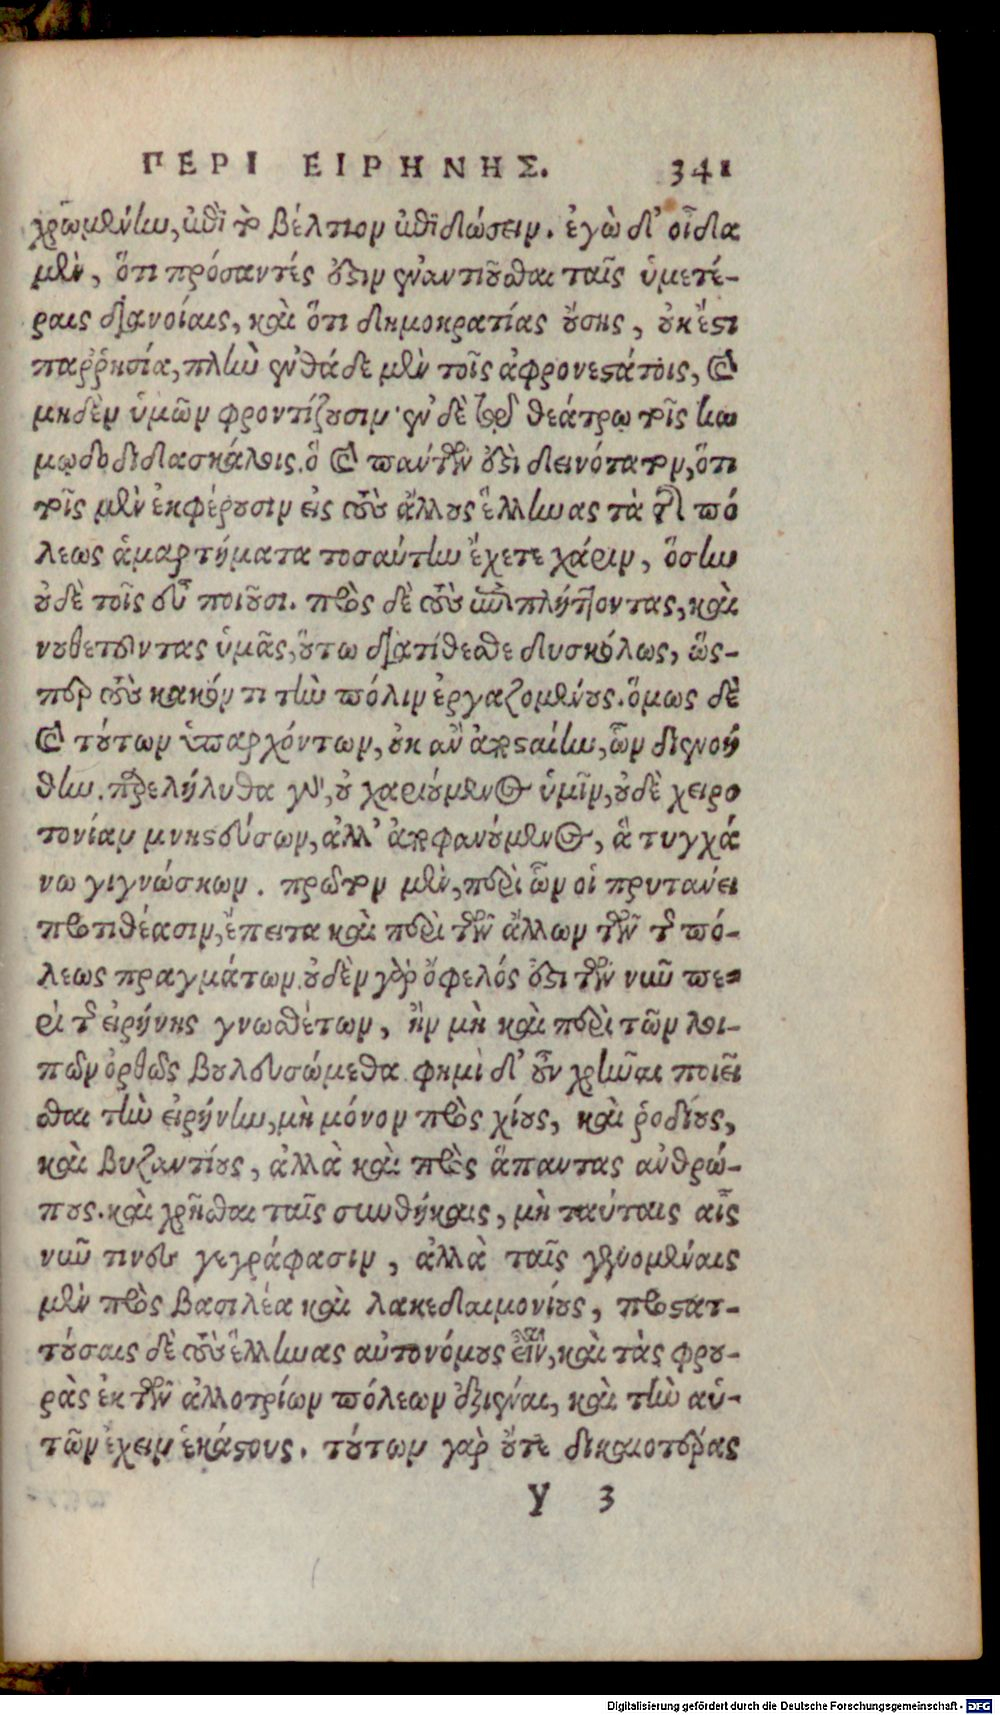 ΠΕΡΙ ΕΙΡΗΝΗΣ. 341
χρωμένην, ἐπὶ τὸ βέλτιον ἐπιδώσειν. ἐγὼ δ' οἶδα
μὲν, ὅτι πρόσαντές ἐστιν ἐναντιοῦσθαι ταῖς ὑμετέ-
ραις διανοίαις, καὶ ὅτι δημοκρατίας οὔσης, οὐκ ἔστι
παῤῥησία, πλὴν ἐνθάδε μὲν τοῖς ἀφρονεστάτοις, καὶ
μηδὲν ὑμῶν φροντίζουσιν· ἐν δὲ τῷ θεάτρῳ τοῖς κω
μῳδοδιδασκάλοις. ὃ καὶ πάντων ἐστὶ δεινότατον, ὅτι
τοῖς μὲν ἐκφέρουσιν εἰς τοὺς ἄλλους ἕλληνας τὰ τῆς πό
λεως ἁμαρτήματα τοσαύτην ἔχετε χάριν, ὅσην
οὐδὲ τοῖς εὖ ποιοῦσι. πρὸς δὲ τοὺς ἐπιπλήττοντας, καὶ
νουθετοῦντας ὑμᾶς, οὕτω διατίθεσθε δυσκόλως, ὥς-
περ τοὺς κακόν τι τὴν πόλιν ἐργαζομένους. ὅμως δὲ
καὶ τούτων ὑπαρχόντων, οὐκ ἂν ἀποσταίην, ὧν διενοή
θην. παρελήλυθα γὰρ, οὐ χαριούμενος ὑμῖν, οὐδὲ χειρο
τονίαν μνηστεύσων, ἀλλ' ἀποφανούμενος, ἃ τυγχά
νω γιγνώσκων. πρῶτον μὲν, περὶ ὧν οἱ πρυτάνει
προτιθέασιν, ἔπειτα καὶ περὶ τῶν ἄλλων τῶν τῆς πό-
λεως πραγμάτων. οὐδὲν γὰρ ὄφελός ἐστι τῶν νῦν πε-
ρὶ τῆς εἰρήνης γνωσθέτων, ἢν μὴ καὶ περὶ τῶν λοι-
πῶν ὀρθῶς βουλευσώμεθα. φημὶ δ' οὖν χρῆναι ποιεῖ
σθαι τὴν εἰρήνην, μὴ μόνον πρὸς χίους, καὶ ῥοδίους,
καὶ βυζαντίους, ἀλλὰ καὶ πρὸς ἅπαντας ἀνθρώ-
πους. καὶ χρῆσθαι ταῖς συνθήκαις, μὴ ταύταις αἷς
νῦν τινες γεγράφασιν, ἀλλὰ ταῖς γενομέναις
μὲν πρὸς βασιλέα καὶ λακεδαιμονίους, προστατ-
τούσαις δὲ τοὺς ἕλληνας αὐτονόμους εἶναι, καὶ τὰς φρου-
ρὰς ἐκ τῶν ἀλλοτρίων πόλεων ἐξιέναι, καὶ τὴν αὑ-
τῶν ἔχειν ἑκάστους. τούτων γὰρ οὔτε δικαιοτέρας
Y 3
Digitalisierung gefördert durch die Deutsche Forschungsgemeinschaft - DFG